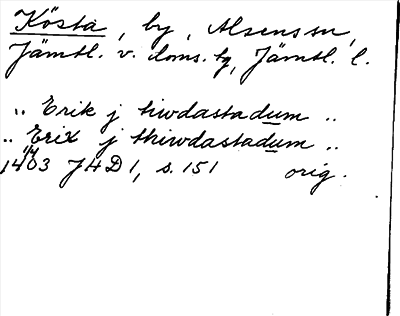 Kösta, by, Alsens sn,
Jämtl. v. doms. hg, Jämtl. l.
.. Erik j tiwdastadum ..
.. Erix j thiwdastadum ..
14/4 1403 JHD 1, s. 151 orig.